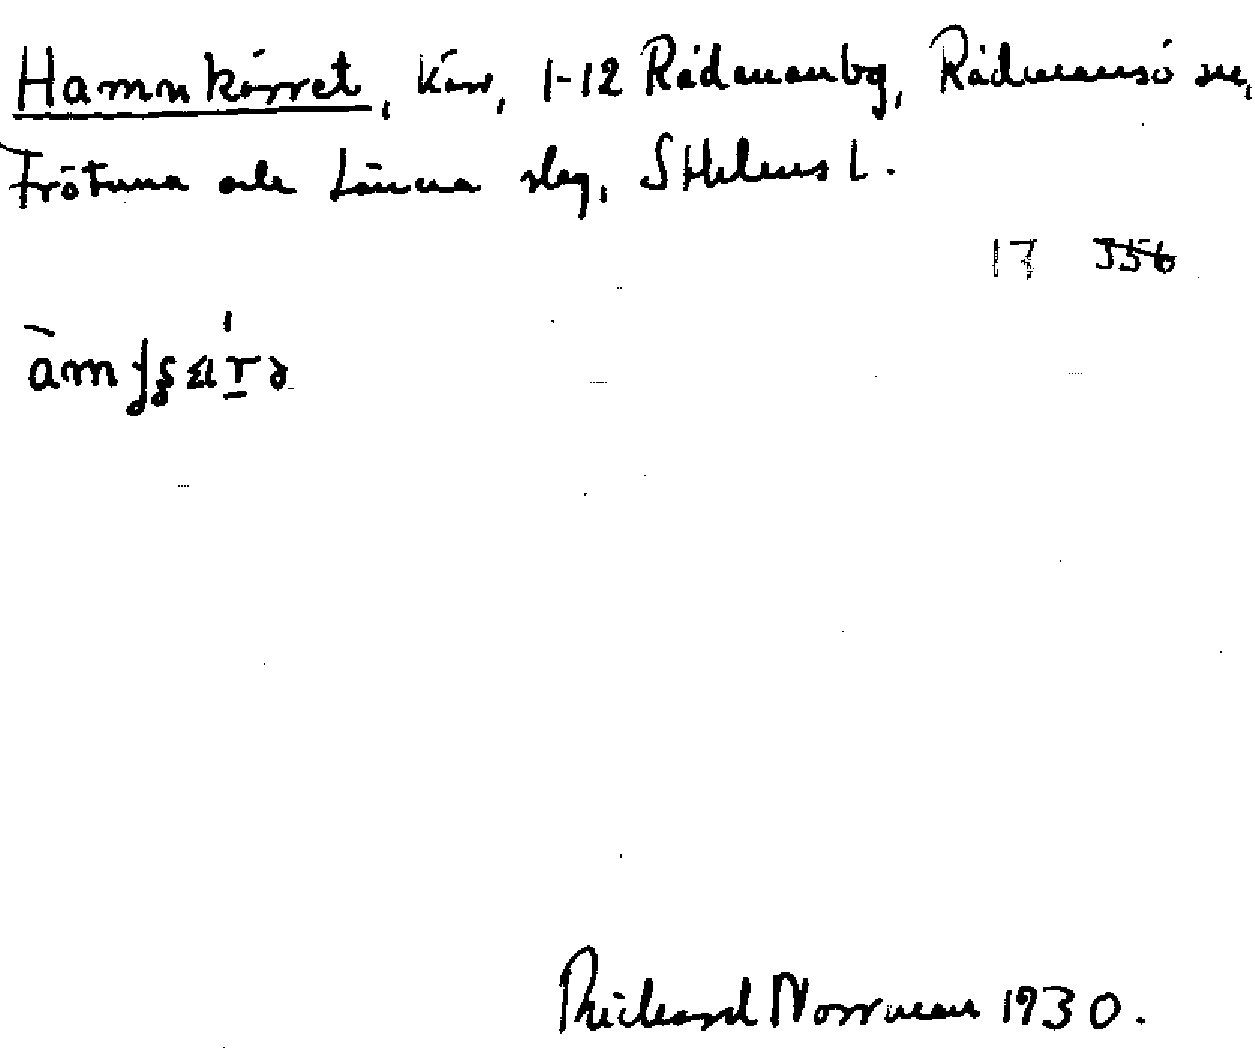 Hamnkärret, Kärr, 1-12 Rådmanby, Rådmansö sn,
Frötuna och Länna slag, SthlmS l.
17 356
Rickard Norrman 1930.